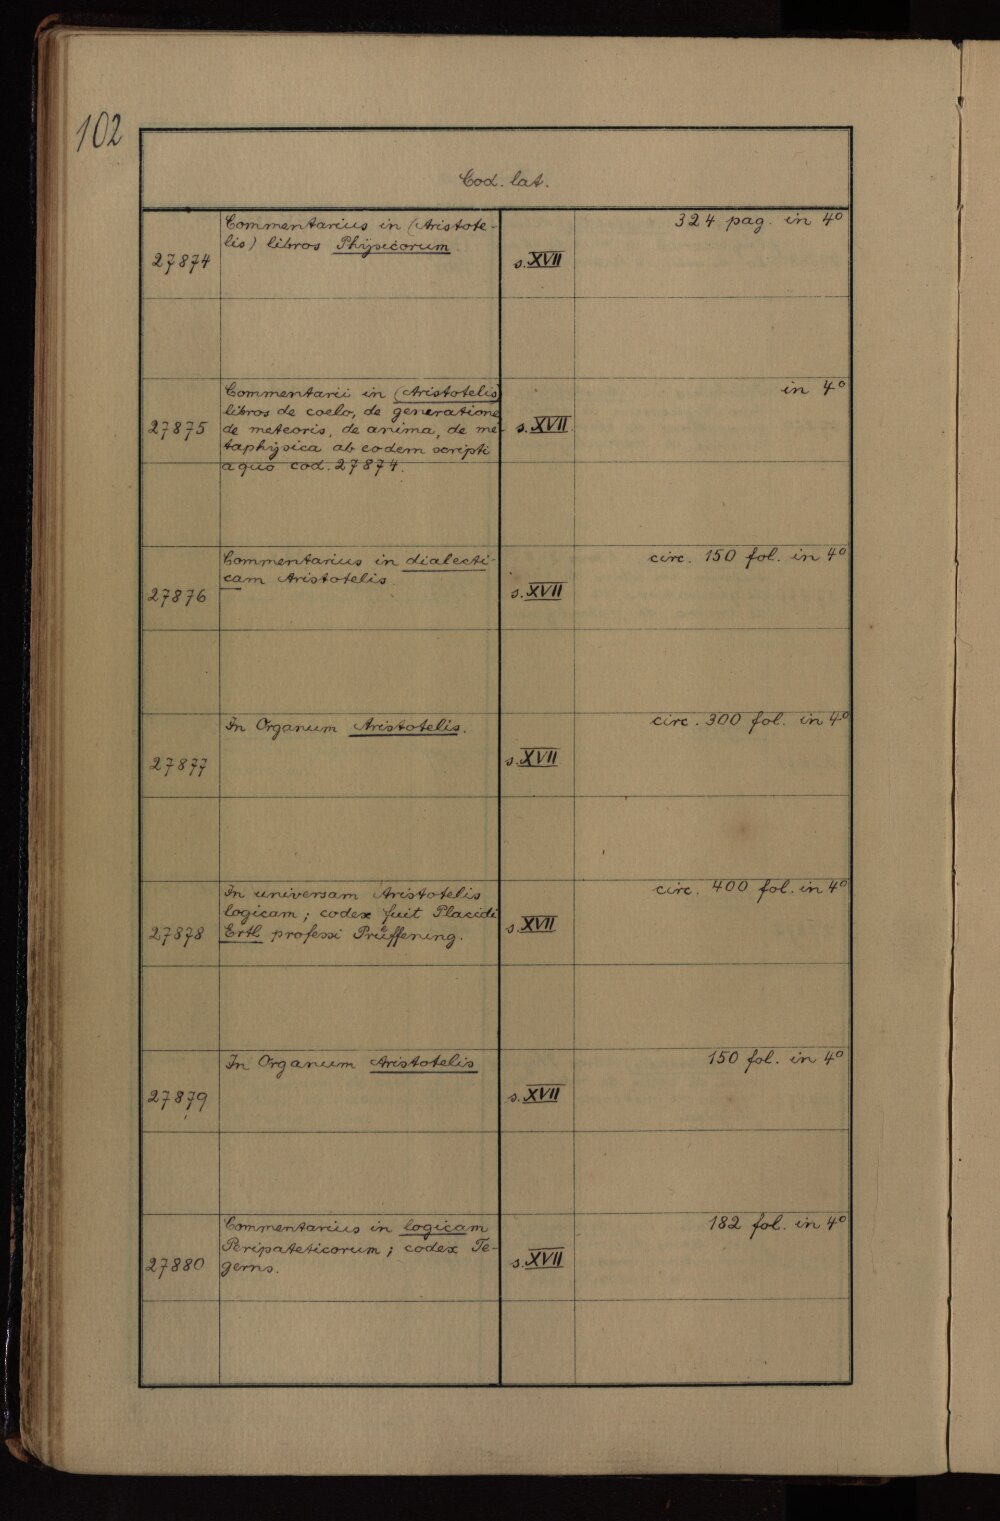 102
Cod. lat.
27874
Commentarius in (Aristote-
lis) libros Physicorum.
s. XVII
324 pag. in 4º
27875
Commentarii in (Aristotelis)
libros de coelo, de generatione
de meteoris, de anima, de me-
taphysica ab eodem scripti
a quo cod. 27874.
s. XVII
in 4º
27876
Commentarius in dialecti-
cam Aristotelis.
s. XVII
circ. 150 fol. in 4º
27877
In Organum Aristotelis.
s. XVII
circ. 300 fol. in 4º
27878
In universam Aristotelis
logicam; codex fuit Placidi
Ertl professi Prüffening.
s. XVII
circ. 400 fol. in 4º
27879
In Organum Aristotelis
s. XVII
150 fol. in 4º
27880
Commentarius in logicam
Peripateticorum; codex Te-
gerns.
s. XVII
182 fol. in 4º